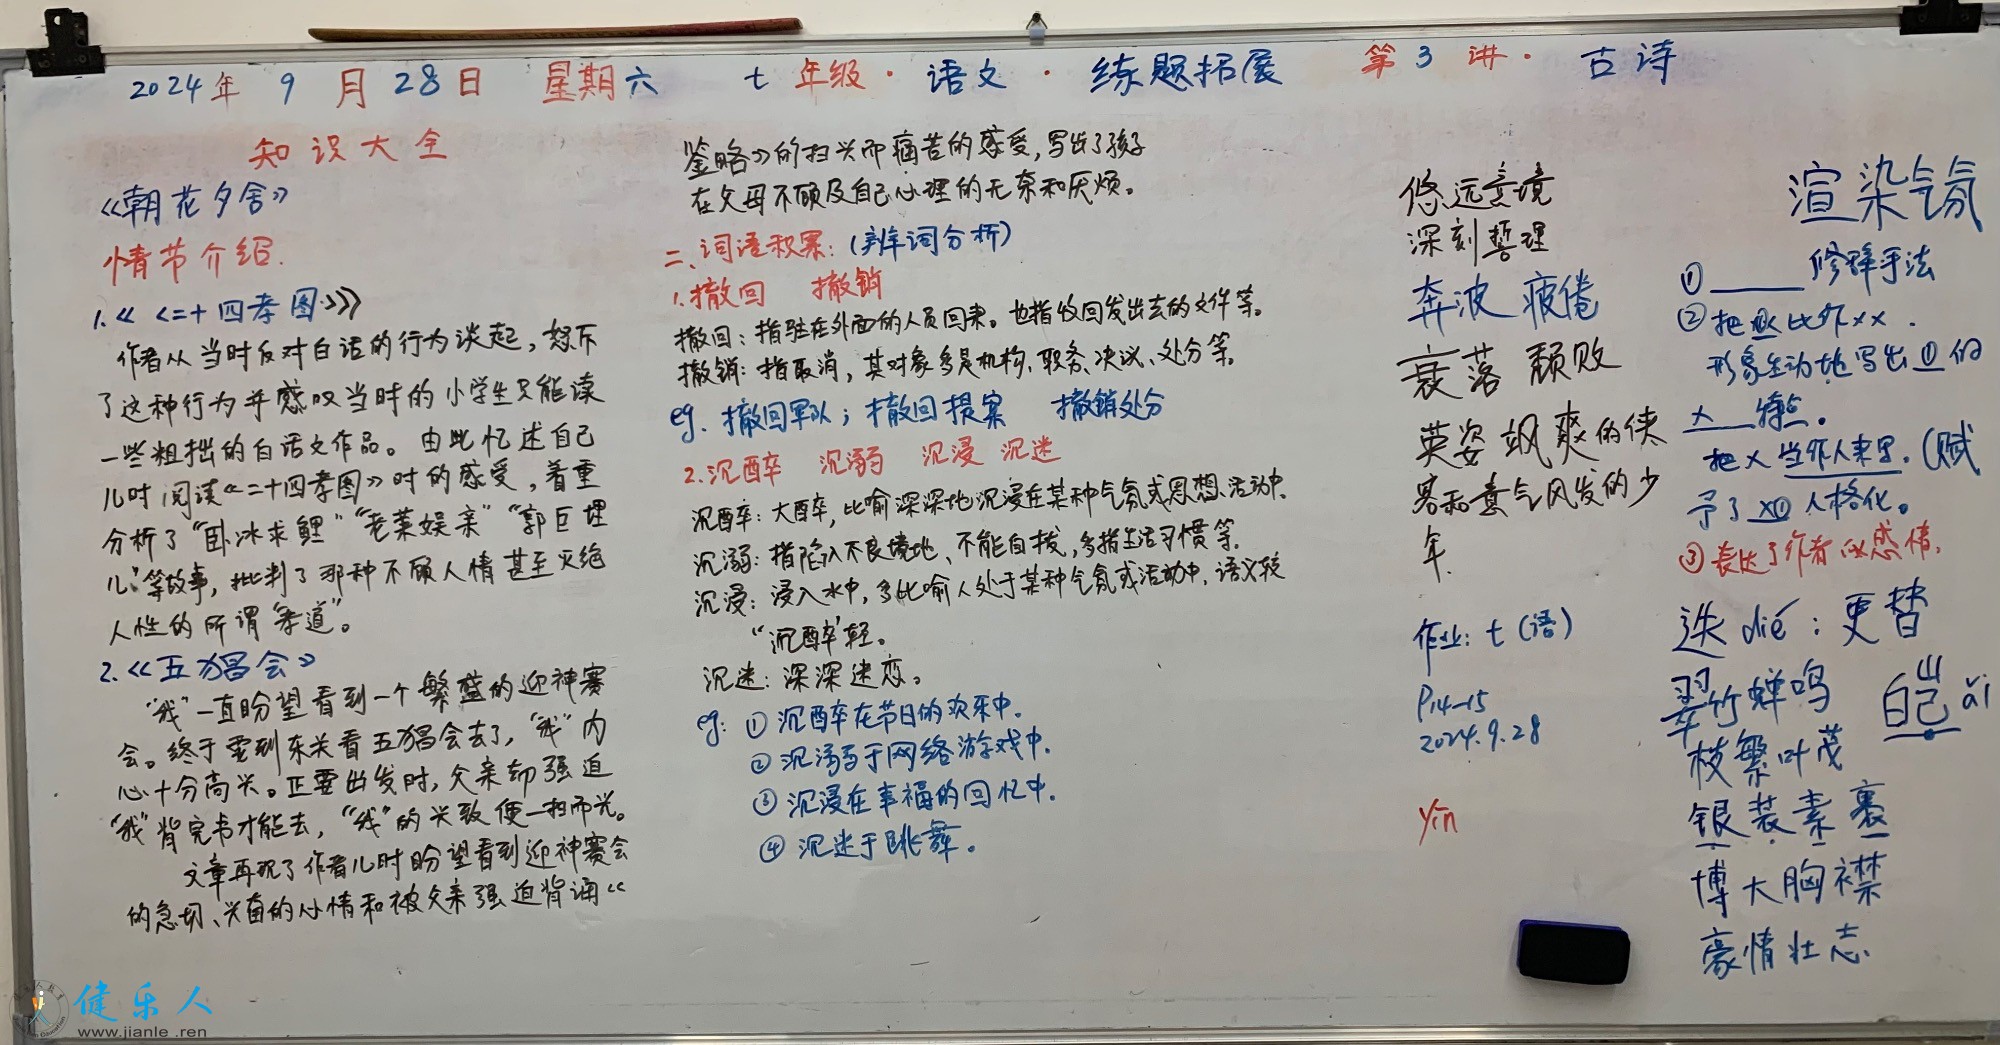 2024年 9 月 28 日 星期六 七 年级 · 语文 · 练题拓展 第 3 讲 · 古诗
知识大全
《朝花夕舍》
情节介绍.
1.《《二十四孝图》》
作者从当时反对白话的行为谈起，怒斥
了这种行为并感叹当时的小学生只能读
一些粗拙的白话文作品。由此忆述自己
儿时阅读《二十四孝图》时的感受，着重
分析了“卧冰求鲤”“老莱娱亲”“郭巨埋
儿”等故事，批判了那种不顾人情甚至灭绝
人性的所谓“孝道”。
2.《五猖会》
“我”一直盼望看到一个繁盛的迎神赛
会。终于要到东关看五猖会去了，“我”内
心十分高兴。正要出发时，父亲却强迫
“我”背完书才能去，“我”的兴致便一扫而光。
文章再现了作者儿时盼望看到迎神赛会
的急切、兴奋的心情和被父亲强迫背诵《
鉴略》的扫兴而痛苦的感受，写出了孩子
在父母不顾及自己心理的无奈和厌烦。
二、词语积累：（辨词分析）
1.撤回 撤销
撤回：指驻在外面的人员回来。也指收回发出去的文件等。
撤销：指取消，其对象多是机构、职务、决议、处分等。
eg. 撤回军队；撤回提案 撤销处分
2.沉醉 沉溺 沉浸 沉迷
沉醉：大醉，比喻深深地沉浸在某种气氛或思想、活动中.
沉溺：指陷入不良境地、不能自拔，多指生活习惯等.
沉浸：浸入水中，多比喻人处于某种气氛或活动中，语义较
“沉醉”轻。
沉迷：深深迷恋。
eg: ① 沉醉在节日的欢乐中.
② 沉溺于网络游戏中.
③ 沉浸在幸福的回忆中.
④ 沉迷于跳舞。
悠远意境
深刻哲理
奔波 疲倦
衰落 颓败
英姿飒爽的侠
客和意气风发的少
年.
作业: 七(语)
P14-15
2024.9.28
Yin
渲染气氛
① ____ 修辞手法
② 把 比作xx.
形象生动地写出①的
x__特点。
把x当作人来写.（赋
予了x①人格化。
③表达了作者 感情.
迭 dié：更替
翠竹蝉鸣
枝繁叶茂
银装素裹
博大胸襟
豪情壮志.
ǎi
健乐人
www.jianle.ren